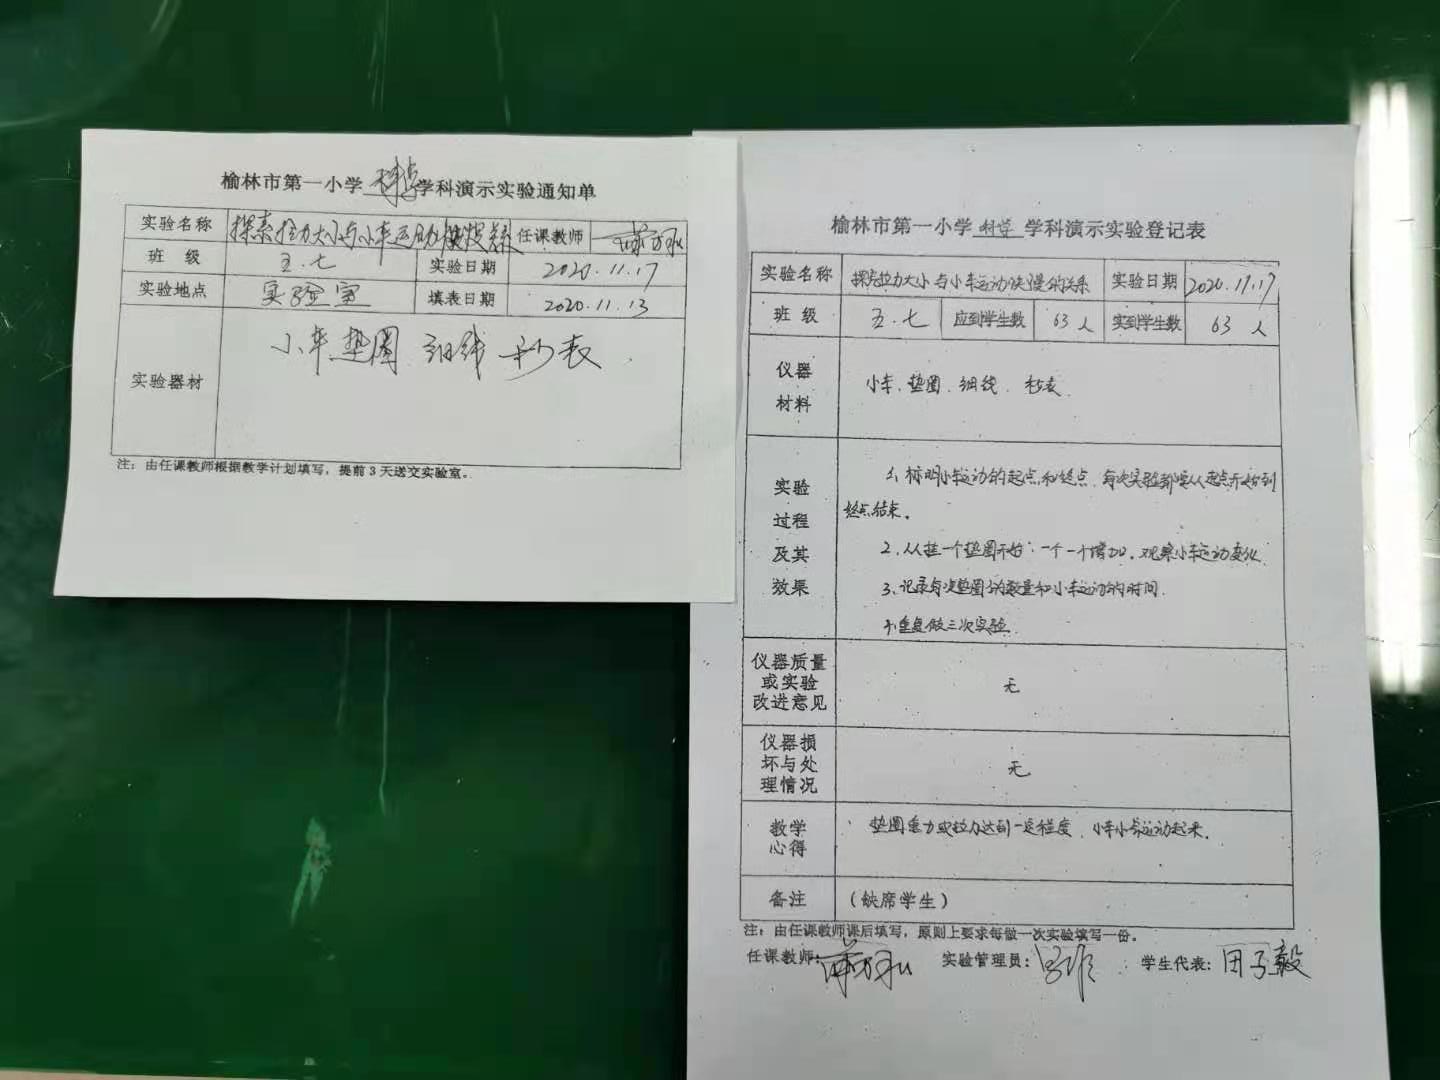 榆林市第一小学 科学 学科演示实验通知单
实验名称 探索拉力大小与小车运动快慢关系 任课教师
班 级 五.七 实验日期 2020.11.17
实验地点 实验室 填表日期 2020.11.13
实验器材 小车 垫圈 细线 秒表
注：由任课教师根据教学计划填写，提前3天送交实验室。
榆林市第一小学 科学 学科演示实验登记表
实验名称 探究拉力大小与小车运动快慢的关系 实验日期 2020.11.17
班 级 五.七 应到学生数 63人 实到学生数 63人
仪器材料 小车、垫圈、细线、秒表
实验过程及其效果
1、标明小车运动的起点和终点，每次实验都要从起点开始到
终点结束。
2、从挂一个垫圈开始，一个一个增加，观察小车运动变化
3、记录每次垫圈的数量和小车运动的时间.
4、重复做三次实验
仪器质量或实验改进意见 无
仪器损坏与处理情况 无
教学心得 垫圈重力或拉力达到一定程度，小车才运动起来。
备注 （缺席学生）
注：由任课教师课后填写，原则上要求每做一次实验填写一份。
任课教师： 实验管理员： 学生代表：子毅